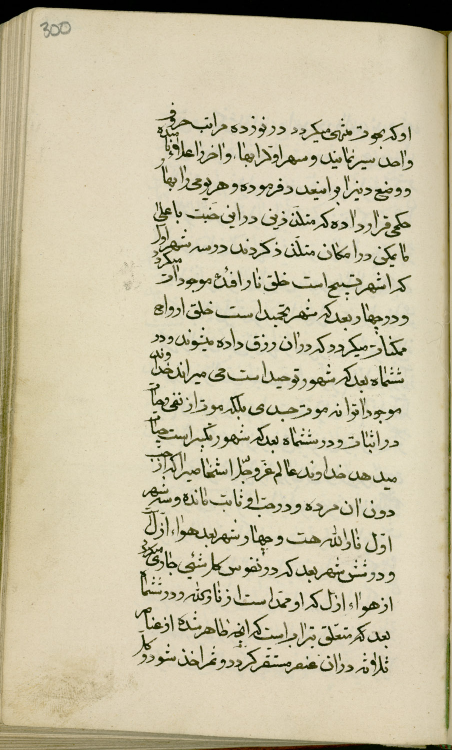 300
او که بهوت منتهی میگردد در نوزده مراتب حروف
واحد سیر نمایند و شهر اول را بهاء و اخر را علاء نامیده
و وضع دین را بر این عدد فرموده و هر یومی را بها
حکمی قرار داده که متلذذین در این جنت با علی
ما یمکن در امکان متلذذ گردند در سه شهر اول
که اشهر تسبیح است خلق نار افئده موجودات میگردد
و در چهار بعد که شهر تحمید است خلق ارواح
ممکنات میگردد که در ان رزق داده میشوند و در
ششماه بعد که شهور توحید است می میراند خداوند
موجودات را نه موت جسدی بلکه موت از نفی و حیات
در اثبات و در ششماه بعد که شهور تکبیر است حیات
میدهد خداوند عالم عز و جل اشخاصیرا که از حب
دون ان مرده و در حب او ثابت مانده و سه شهر
اول نار الله هست و چهار شهر بعد هواء ازل
و در شش شهر بعد که در نفوس کلشیئ جاری میگردد
از هواء ازل که او ممد است از نار الله و در ششماه
بعد که متعلق بتراب است که انچه ظاهر شده از عناصر
ثلاثه در ان عنصر مستقر گردد و ثمر اخذ شود و کل